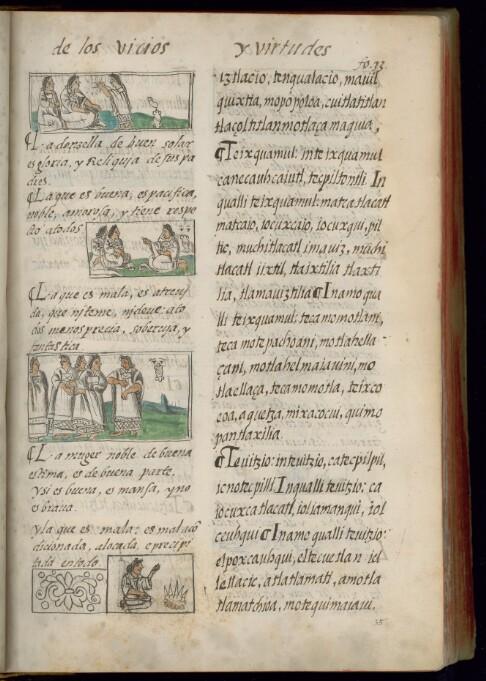 de los vicios y virtudes
fo. 33
La donzella de buen solar
es gloria, y Reliquia de sus pa
dres.
La que es buena, es pacifica,
noble, amorosa, y tiene respe
cto a todos
La que es mala, es atreui
da, que ni teme, ni deue: a to
dos menosprecia, soberuia, y
fantastica
La muger noble de buena
estima, es de buena parte,
y si es buena, es mansa, y no
es braua.
y la que es mala: es mal acō
dicionada, alocada, e precipi
tada en todo.
iztlacio, tenqualacio, mauil
quixtia, mopopoloa, cuitlatitlan
tlaçoltitlan motlaça maquia.
Teixquamul: in teixquamul
ca necauhcaiutl, tecpiltontli. In
qualli teixquamul: matca tlacatl
matcaio, iocuxcaio, iocuxqui, pil
tic, muchi tlacatl imauiz, muchi
tlacatl iixtil, tlaixtilia tlaxti
lia, tlamauiztilia In amo qua
lli teixquamul: tecamomotlani,
teca motepachoani, motlahella
çani, motlahelmaiauini, mo
tlaellaça, tecamomotla, teixco
eoa, aquetza, mixacocui, quimo
pantlaxilia.
Teuitzio: in teuitzio, ca tecpilpil,
icnotecpilli. In qualli teuitzio: ca
iocuxca tlacatl, ioliamanqui, iol
ceuhqui In amo qualli teuitzio:
elpoxcauhqui, eltecuetlan iel
lellacic, atlatlamati, amo tla
tlamatchioa, motequimaiaui.
35